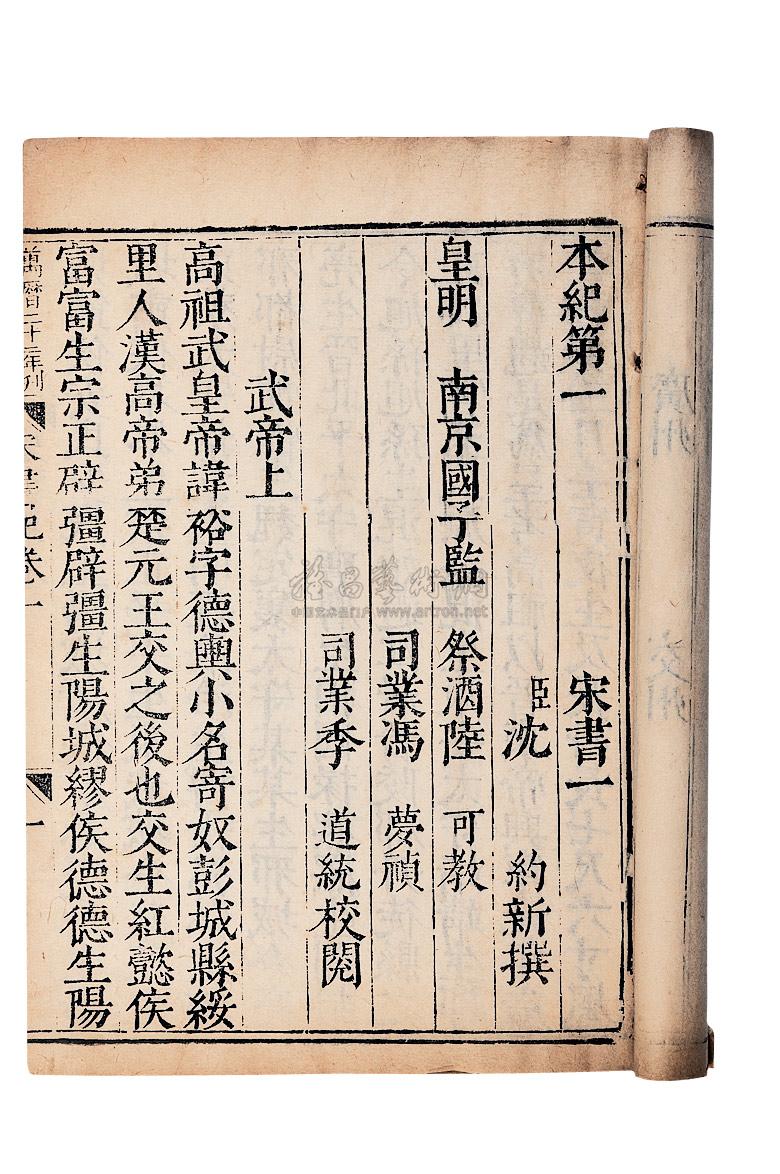 本紀第一 宋書一
臣沈 約新撰
皇明 南京國子監 祭酒陸 可教
司業馮 夢禎
司業季 道統校閱
武帝上
高祖武皇帝諱裕字德輿小名寄奴彭城縣綏
里人漢高帝弟楚元王交之後也交生紅懿侯
富富生宗正辟彊辟彊生陽城繆侯德德生陽
萬曆二十二年刊 宋書紀卷一 一
廣州 交州
www.artron.net